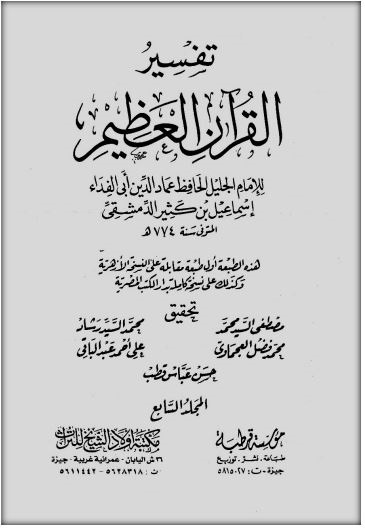 تفسير
القرآن العظيم
للإمام الجليل الحافظ عماد الدين أبى الفداء
إسماعيل بن كثير الدمشقى
المتوفى سنة ٧٧٤ هـ
هذه الطبعة أول طبعة مقابلة على النسخة الأزهرية
وكذلك على نسخة كاملة بدار الكتب المصرية
تحقيق
مصطفى السيد محمد
محمد السيد رشاد
محمد فضل العجماوى
على أحمد عبد الباقى
حسن عباس قطب
المجلد السابع
مؤسسة قرطبة
طباعة . نشر . توزيع
جيزة - ت : ٥٨١٥٠٢٧
مكتبة أولاد الشيخ للتراث
٣٦ ش اليابان - عمرانية غربية - جيزة
ت : ٥٦٢٨٣١٨ - ٥٦١١٤٤٢